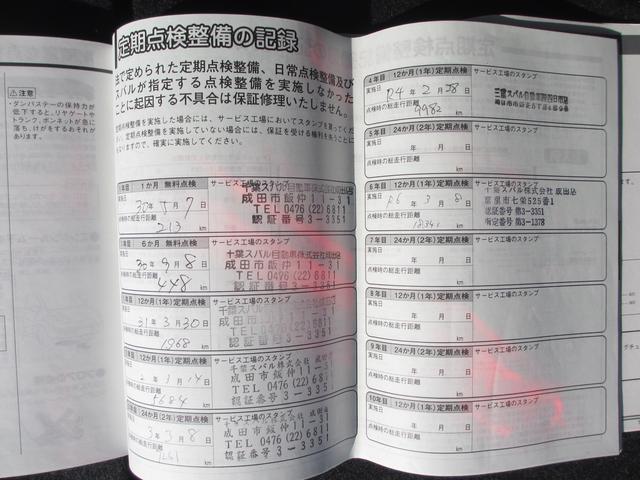 ⚠注意
・ダンパステーの保持力が
低下すると、リヤゲートや
トランク、ボンネットが急に
落ち、けがをするおそれが
あります。
定期点検整備の記録
法で定められた定期点検整備、日常点検整備及び
スバルが指定する点検整備を実施しなかった
ことに起因する不具合は保証修理いたしません。
定期点検整備を実施した場合には、サービス工場においてスタンプを貰ってくだ
定期点検整備を実施していない場合には、保証を受ける権利を失うことに
なりますので、確実に実施してください。
年目 1か月 無料点検 サービス工場のスタンプ
実施日
30年5月7日
点検時の総走行距離
213 km
千葉スバル自動車株式会社成田店
成田市飯仲11-31
TEL 0476(22)6811
認証番号3-3351
年目 6か月 無料点検 サービス工場のスタンプ
実施日
30年9月8日
点検時の総走行距離
448 km
千葉スバル自動車株式会社成田店
成田市飯仲11-31
TEL 0476(22)6811
認証番号3-3351
年目 12か月(1年)定期点検 サービス工場のスタンプ
31年3月30日
点検時の総走行距離
1968 km
千葉スバル
成田市飯仲11-31
TEL 0476(22)6811
認証番号3-3351
年目 12か月(1年)定期点検 サービス工場のスタンプ
2年1月14日
点検時の総走行距離
5684 km
千葉スバル株式会社 成田店
成田市飯仲11-31
TEL 0476(22)6811
認証番号3-3351
年目 24か月(2年)定期点検 サービス工場のスタンプ
3年3月8日
点検時の総走行距離
km
千葉スバル株式会社 成田店
成田市飯仲11-31
TEL 0476(22)6811
認証番号3-3351
4年目 12か月(1年)定期点検 サービス工場のスタンプ
実施日
R4年2月28日
点検時の総走行距離
9982 km
5年目 24か月(2年)定期点検 サービス工場のスタンプ
実施日
年 月 日
点検時の総走行距離
km
6年目 12か月(1年)定期点検 サービス工場のスタンプ
実施日
R6年3月8日
点検時の総走行距離
km
千葉スバル株式会社 成田店
富里市七栄525番1
認証番号 第3-3351
指定番号 第3-1378
7年目 24か月(2年)定期点検 サービス工場のスタンプ
実施日
年 月 日
点検時の総走行距離
km
8年目 12か月(1年)定期点検 サービス工場のスタンプ
実施日
年 月 日
点検時の総走行距離
km
9年目 24か月(2年)定期点検 サービス工場のスタンプ
実施日
年 月 日
点検時の総走行距離
km
10年目 12か月(1年)定期点検 サービス工場のスタンプ
実施日
年 月 日
点検時の総走行距離
km